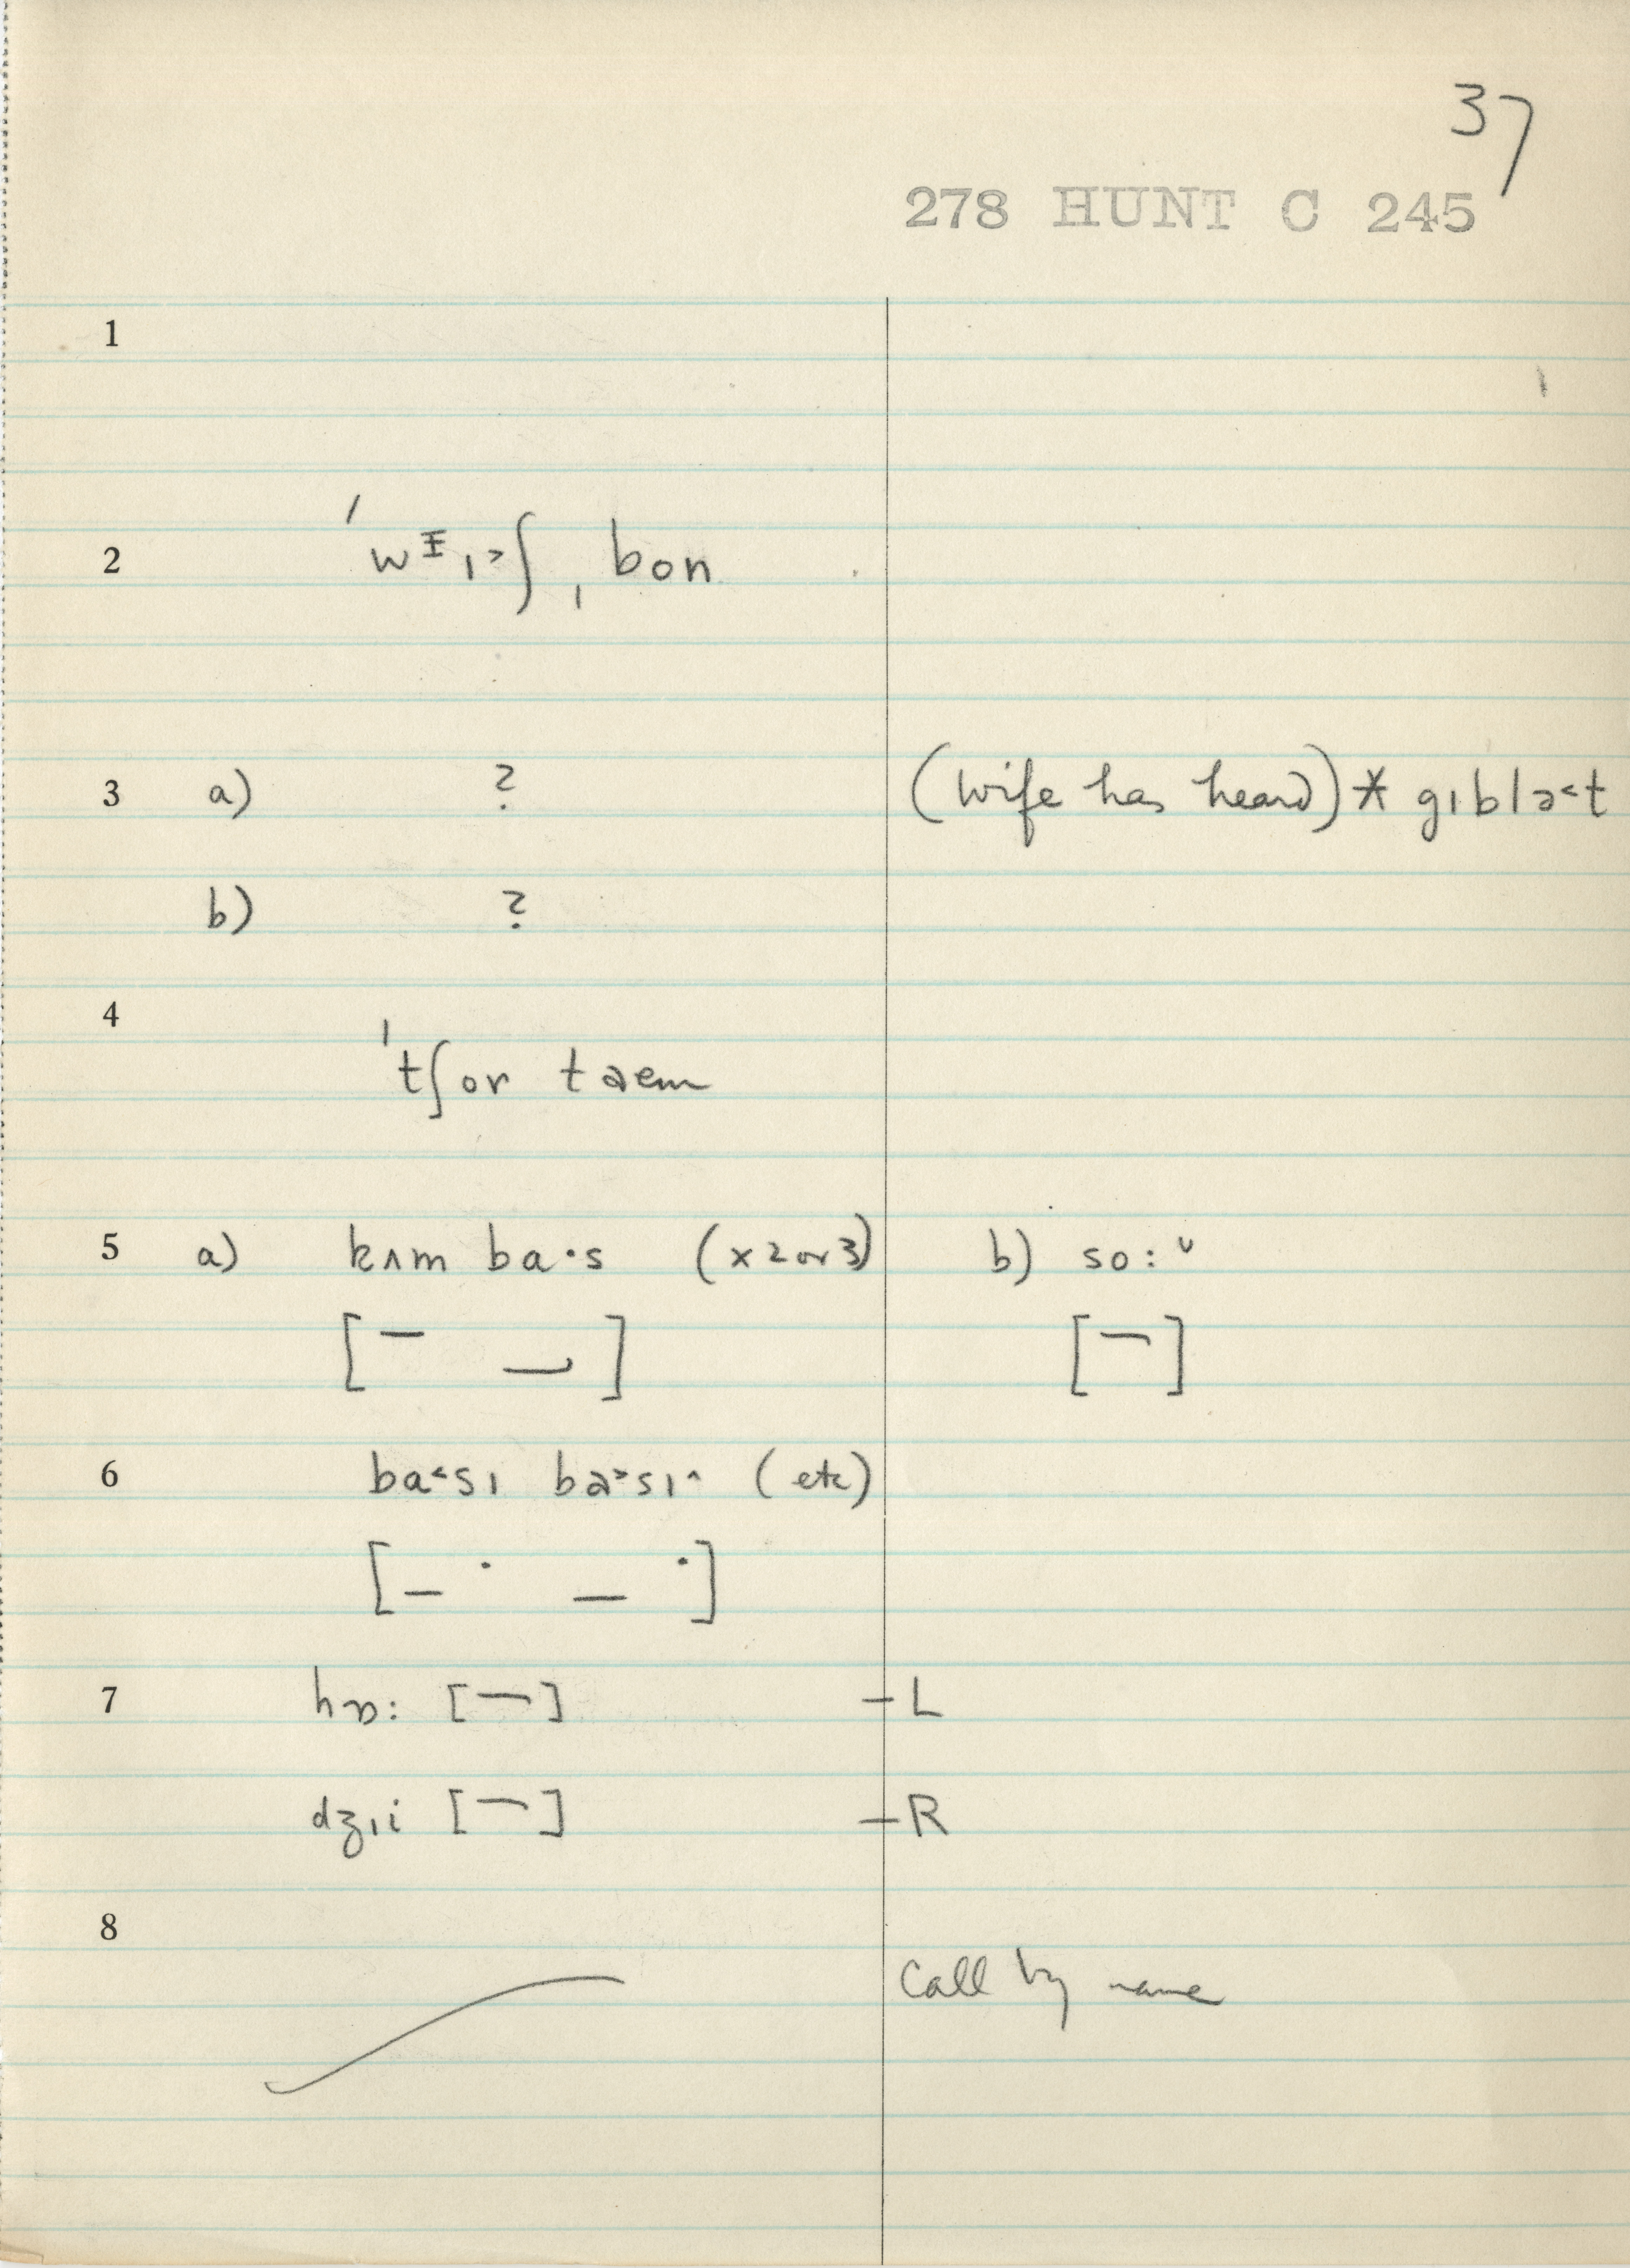 37
278 HUNT C 245
1
2 ˈwᵻɪ˃ʃˌbon
3 a) ? (wife has heard) * gɪblə˂t
b) ?
4
ˈtʃor taem
5 a) kʌm ba·s (x2 or 3) b) so:ᵛ
6 ba˂sɪ ba˃sɪ^ (etc)
7 hɒ: [ ] – L
dʒɪi [ ] – R
8
Call by name